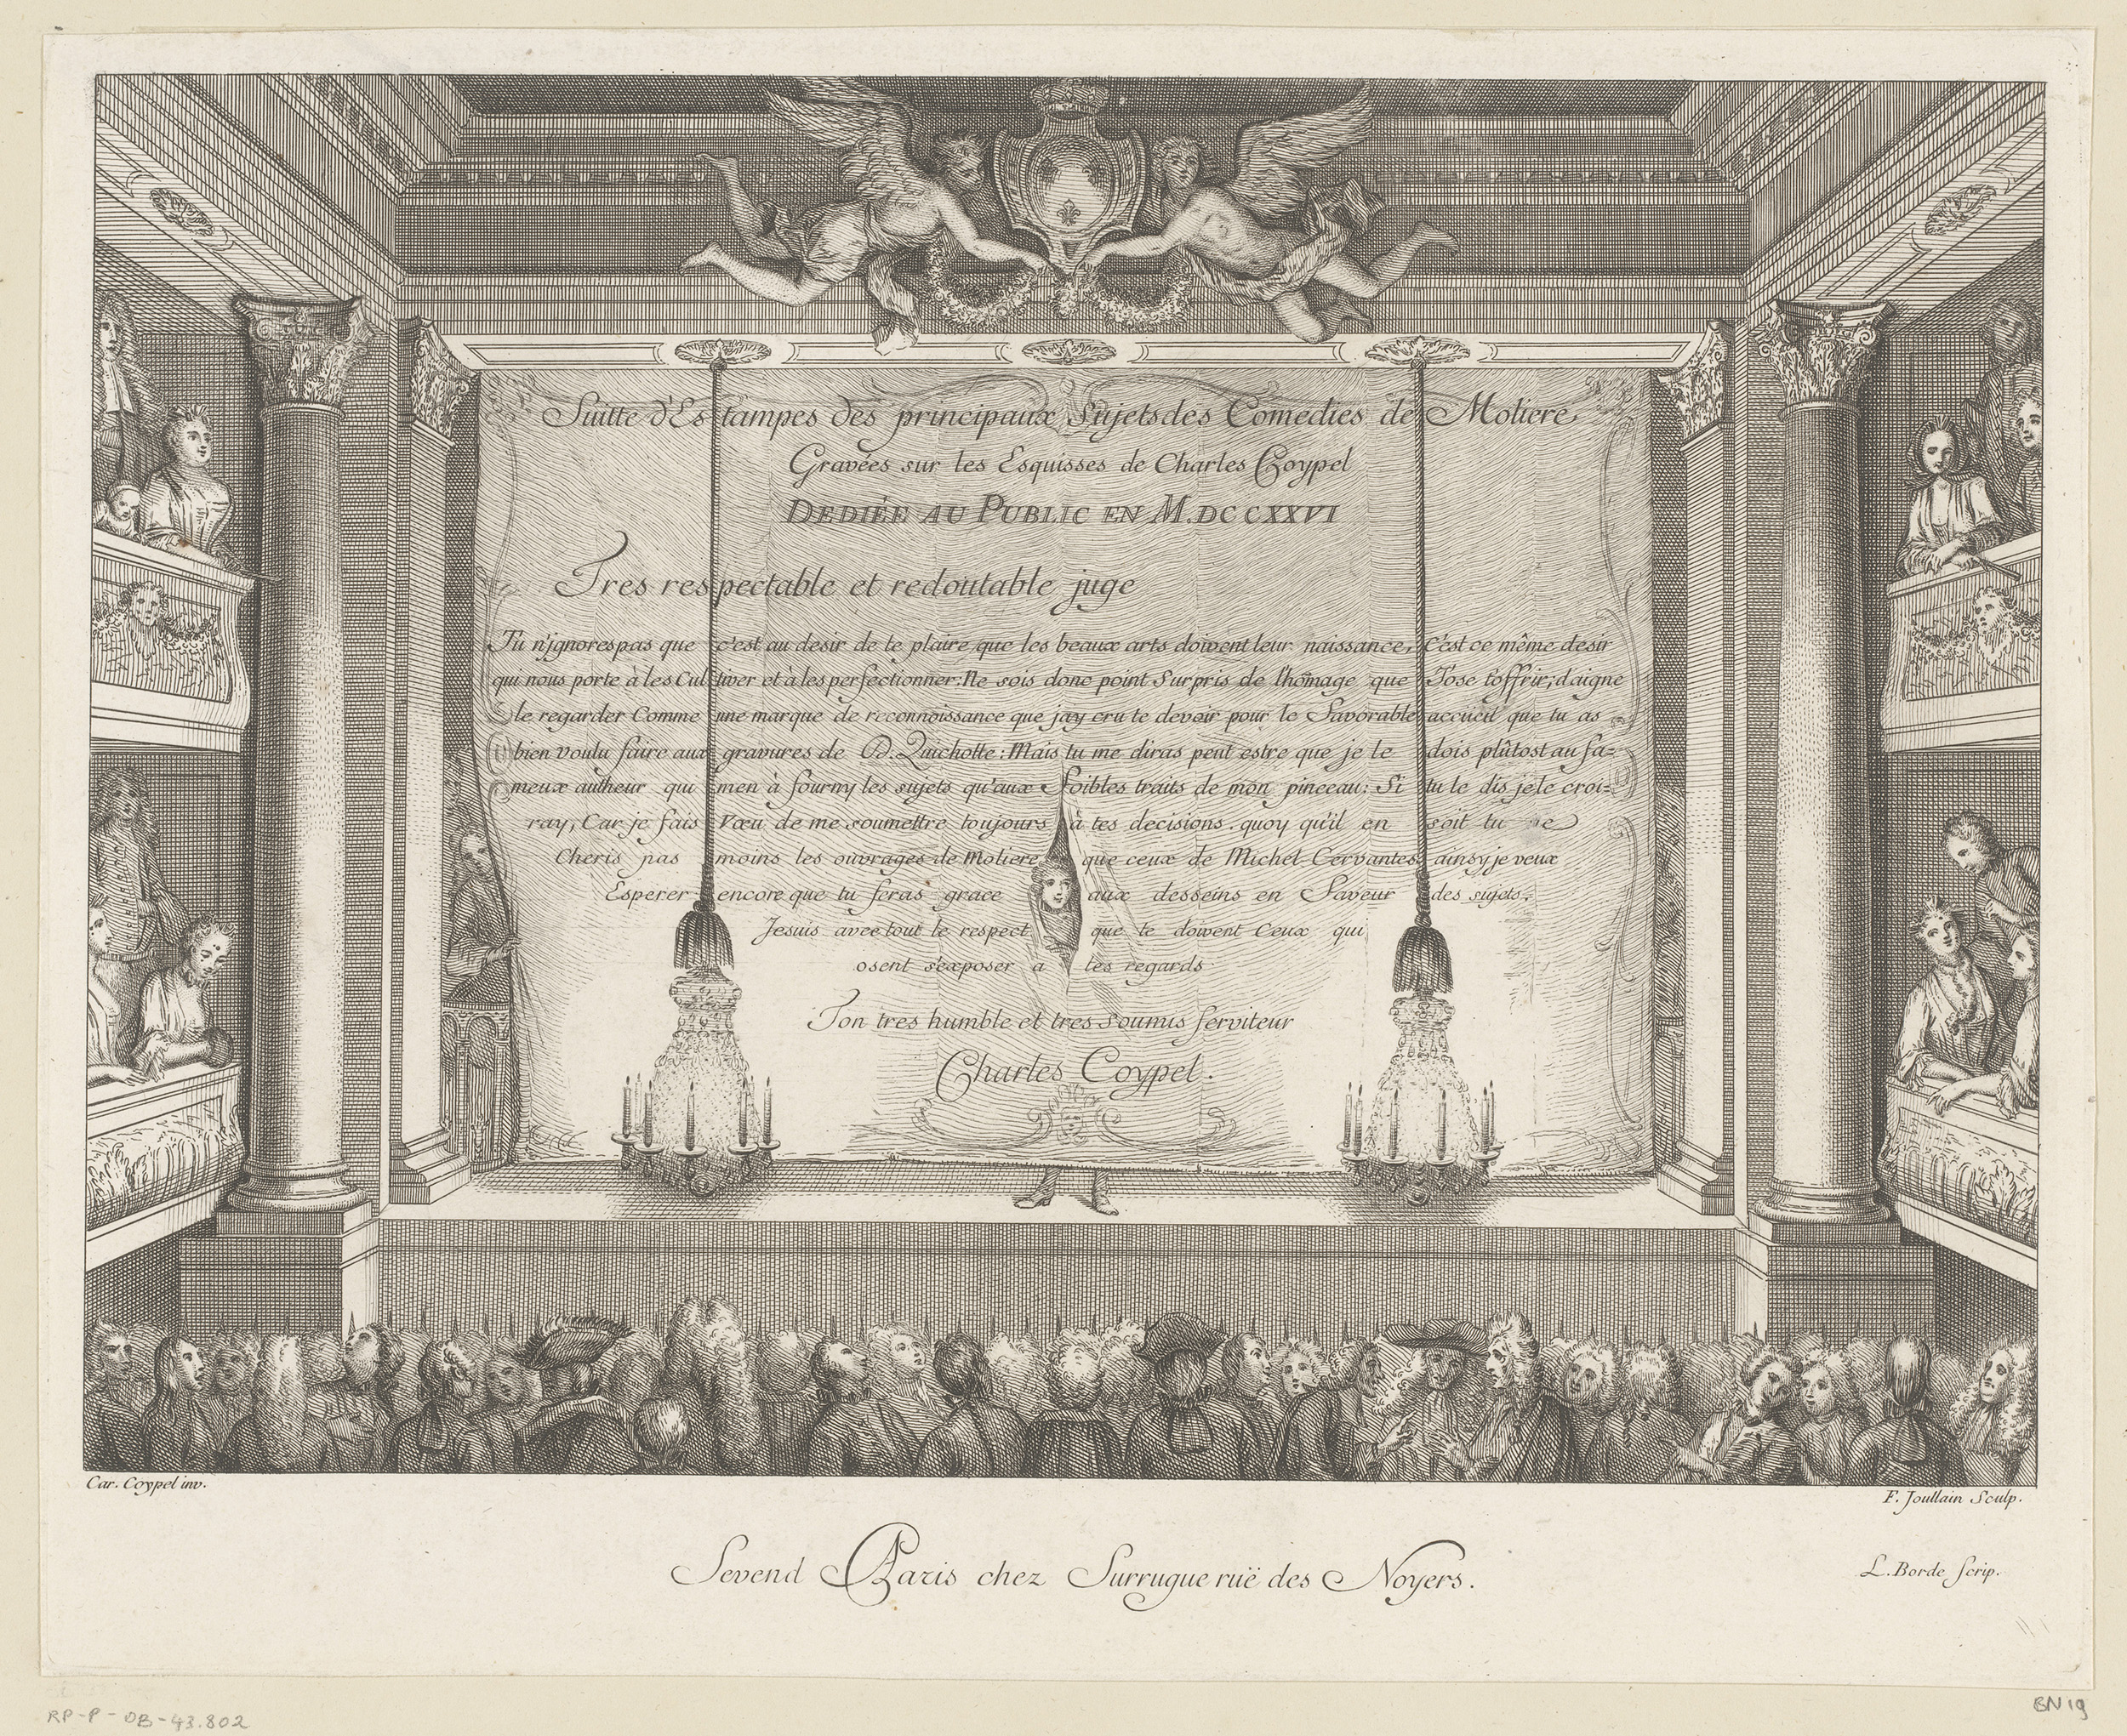 Suitte d'Estampes des principaux Sujets des Comedies de Moliere
Gravées sur les Esquisses de Charles Coypel
DEDIÉE AU PUBLIC EN M.DCCXXVI
Tres respectable et redoutable juge
Tu n'jgnores pas que c'est au desir de te plaire que les beaux arts doivent leur naissance, C'est ce même desir
qui nous porte à les Cultiver et à les perfectionner: Ne sois donc point Surpris de l'hōmage que J'ose t'offrir; daigne
le regarder Comme une marque de reconnoissance que jay cru te devoir pour le Favorable accüeil que tu as
bien voulu faire aux gravures de D. Quichotte: Mais tu me diras peut estre que je le dois plûtost au fa=
meux autheur qui men à fourny les sujets qu'aux Foibles traits de mon pinceau: Si tu le dis je le croi=
ray, Car je fais Vœu de me soumettre toujours à tes decisions. quoy qu'il en soit tu ne
Cheris pas moins les ouvrages de Moliere que ceux de Michel Cervantes ainsy je veux
Esperer encore que tu feras grace aux desseins en Faveur des sujets.
Jesuis avec tout le respect que te doivent Ceux qui
osent s'exposer a tes regards
Ton tres humble et tres soumis serviteur
Charles Coypel.
Car. Coypel inv.
F. Joullain Sculp.
Sevend AParis chez Surrugue ruë des Noyers.
L. Borde Scrip.
RP-P-OB-43.802
BN 19